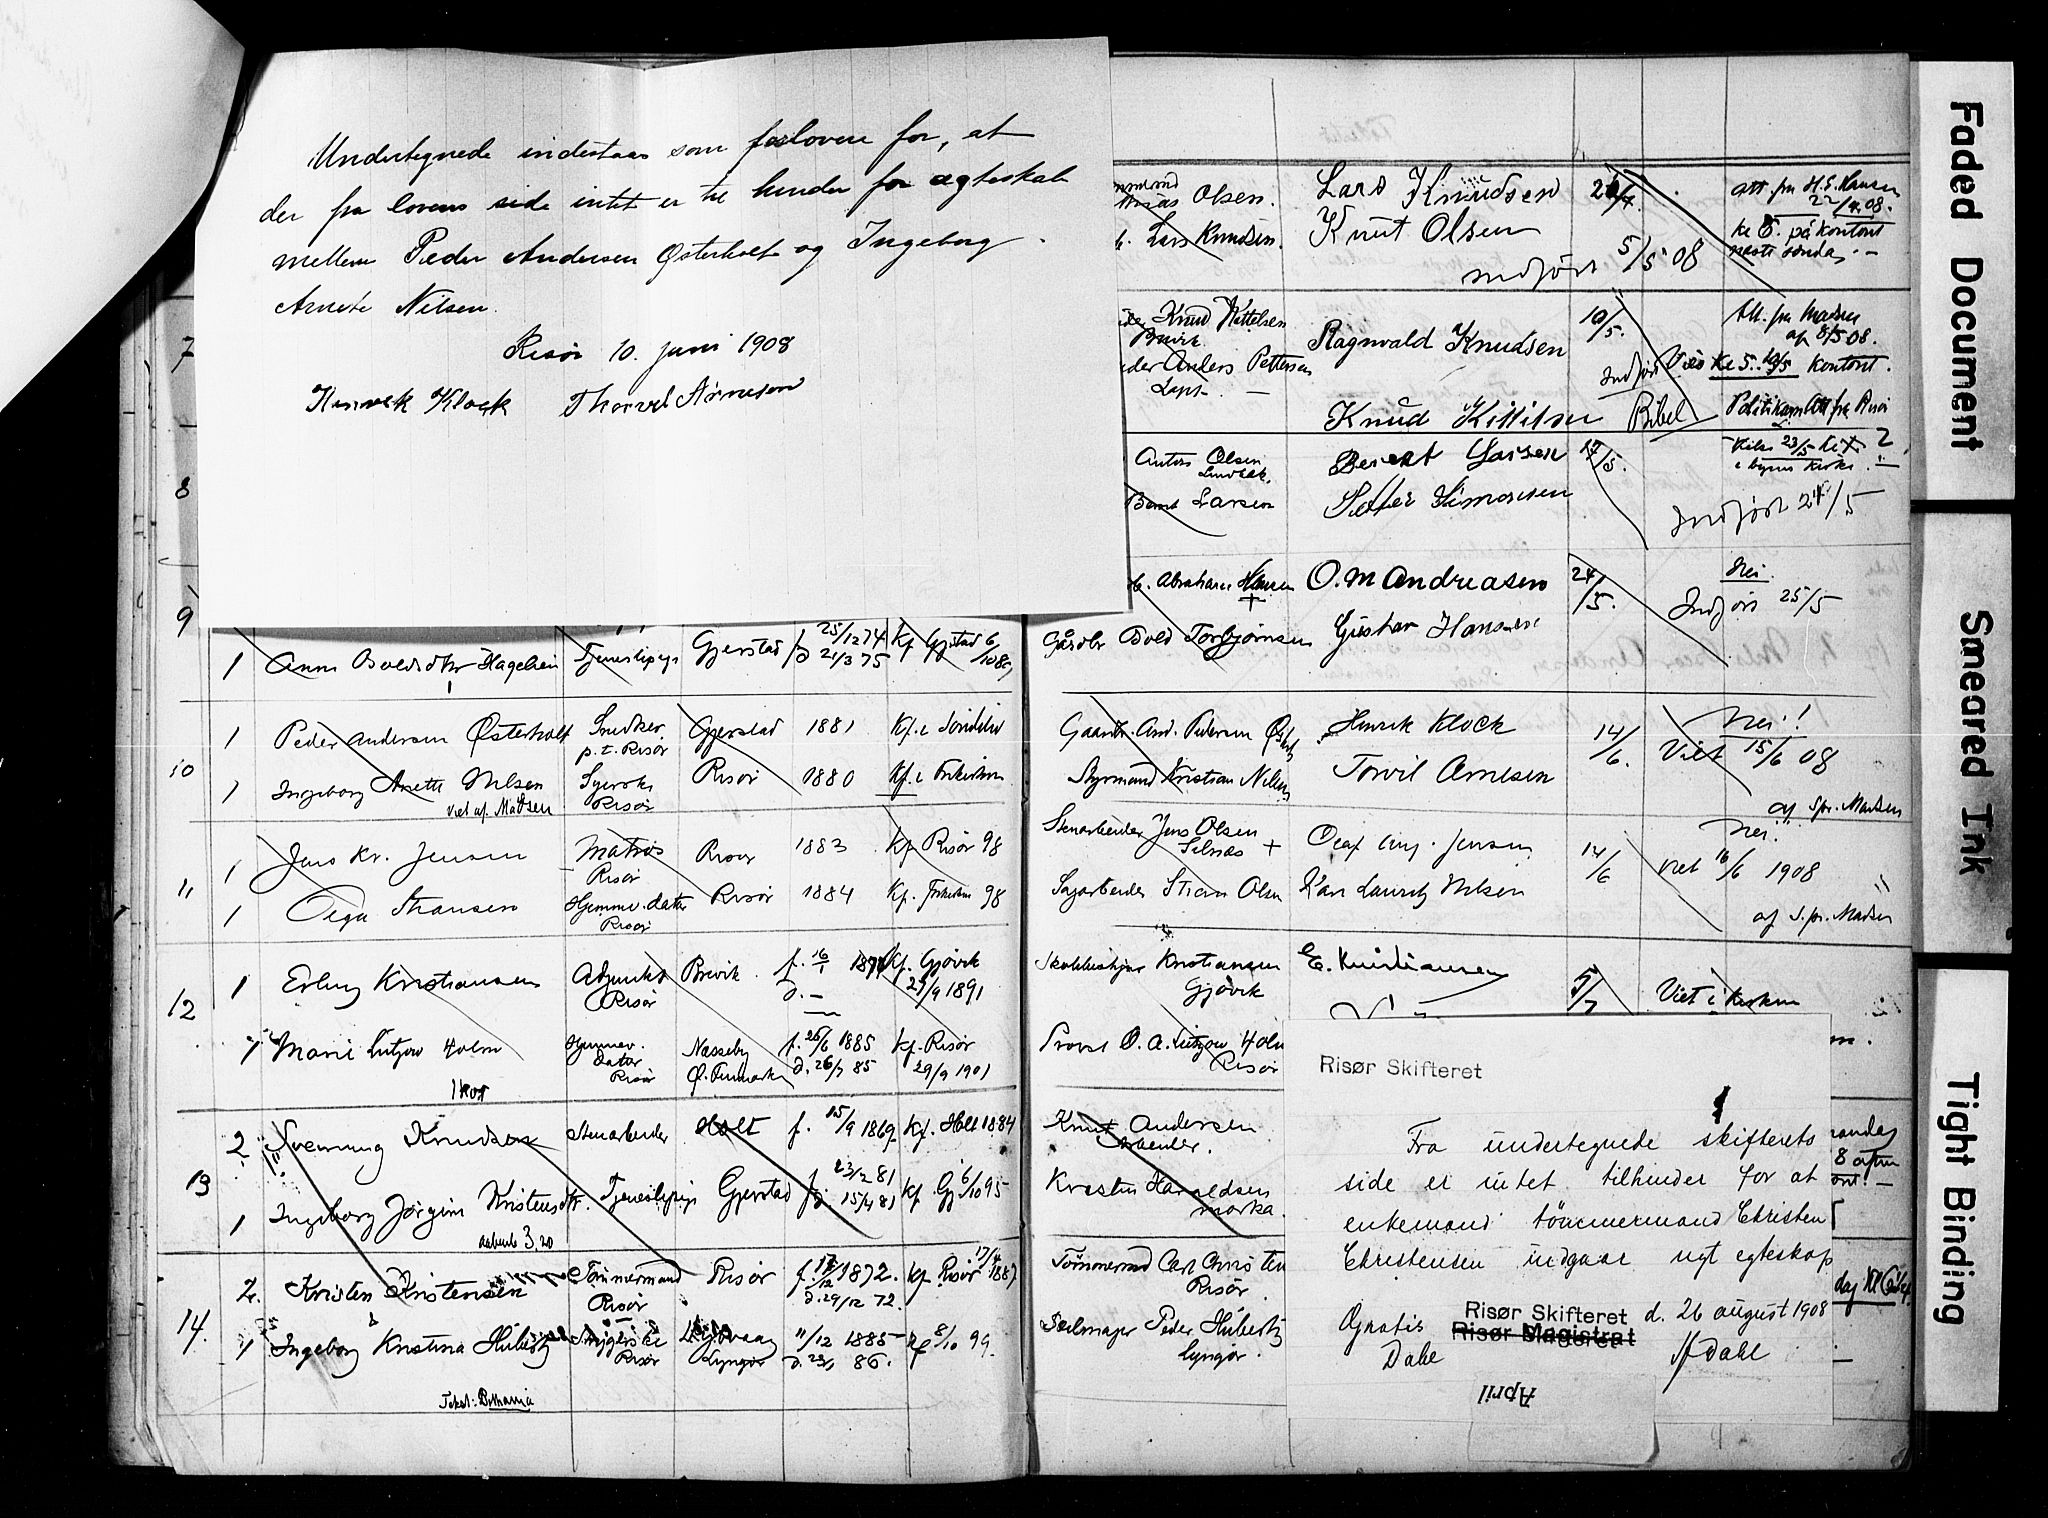 Undertegnede indestaar som forlovere for, at
der fra lovens side intet er til hinder for ægteskab
mellem Peder Andersen Østerholt og Ingeborg
Anete Nilsen.
Risør 10. juni 1908
Henrik Klock Thorvel Arnesen
7
8
9
1 Anne Boldsdtr Hagelien Tjenestepige Gjerstad f 25/12 74 Kf Gjstad 6/10 89
d 21/3 75
10
1 Peder Andersen Østerholt Snedker p.t. Risør Gjerstad 1881 Kf. i Søndeled
1 Ingeborg Anette Nilsen Syerske Risør Risør 1880 Kf. i Frikirken
viet af. Madsen
11
1 Jens Kr. Jensen Matros Risør Risør 1883 Kf Risør 98
1 Olga Hansen Hjemmev. datter Risør Risør 1884 Kf. Frikirken 98
12
1 Erling Kristiansen Adjunkt Risør Brevik f. 16/1 Kf. Gjøvik
d. — 27/9 1891
1 Marie Lützow Holm Hjemmev. datter Risør Næsseby Ø. Finmarken f. 26/6 1885 Kf. Risør
d. 26/7 85 29/9 1901
13
2 Svenning Knudsen Stenarbeider Holt f. 15/9 1869 Kf. Holt 1884
1 Ingeborg Jørgine Kristensdtr. Tjenestepige Gjerstad f. 23/2 81 Kf Gj 6/10 95
d. 15/4 81
14.
2. Kristen Kristensen Tømmermand Risør Risør f. 17/12 1872. Kf Risør 1887
d. 29/12 72.
1 Ingeborg Kristina Hubertz Risør Lyngør 11/12 1885 Kf 8/10 99
86.
Tekst: Bethania
Olsen. Lars Knudsen 5/5 08 Att. fra H. S. Hansen
22/4 08.
Lars Knudsen. Knut Olsen kl 6. på kontoret
næste søndag
indført 5/5 08
Knud Kittelsen 10/5. Att. fra Madsen
Brevik af 8/5 08.
Ragnvald Knudsen
Anders Pettersen Indført Vies kl 5. 10/5 kontoret.
Knud Kittilsen Bibel Politikam Att fra Risør
Anton Olsen Berent Larsen 17/5. 23/5
i byens kirke.
Bernt Larsen Peter Simonsen Indført 24/5
Abraham Hansen O. M Andreasen 24/5. Nei.
Indført 25/5
Gårdbr Bold Torbjørnsen Gustav Hansen
Gaardbr. And. Pedersen Østerh Henrik Klock 14/6. Nei!
Viet 15/6 08
Styrmand Kristian Nilsen Torvil Arnesen
af Spr. Madsen
Stenarbeider Jens Olsen Olaf Aug. Jensen 14/6 Nei!
viet 16/6 1908
Sagarbeider Stian Olsen Karl Lauritz Nilsen
af S.pr. Madsen
Kristiansen E. Kristiansen 5/7 Viet i kirken
Gjøvik
Provst O. A. Lützow Holm
Risør
Knut Andersen
Arbeider.
Kristen Haraldsen
Tømmermand Carl Christen
Risør.
Seilmager Peder Hubertz
Lyngør.
Risør Skifteret
Fra undertegnede skifterets
side er intet tilhinder for at
enkemand tømmermand Christen
Christensen indgaar nyt egteskap
Risør Skifteret d. 26 august 1908
Risør Magistrat
Gratis
Dahl
Dahl
April
Faded Document
Smeared Ink
Tight Binding